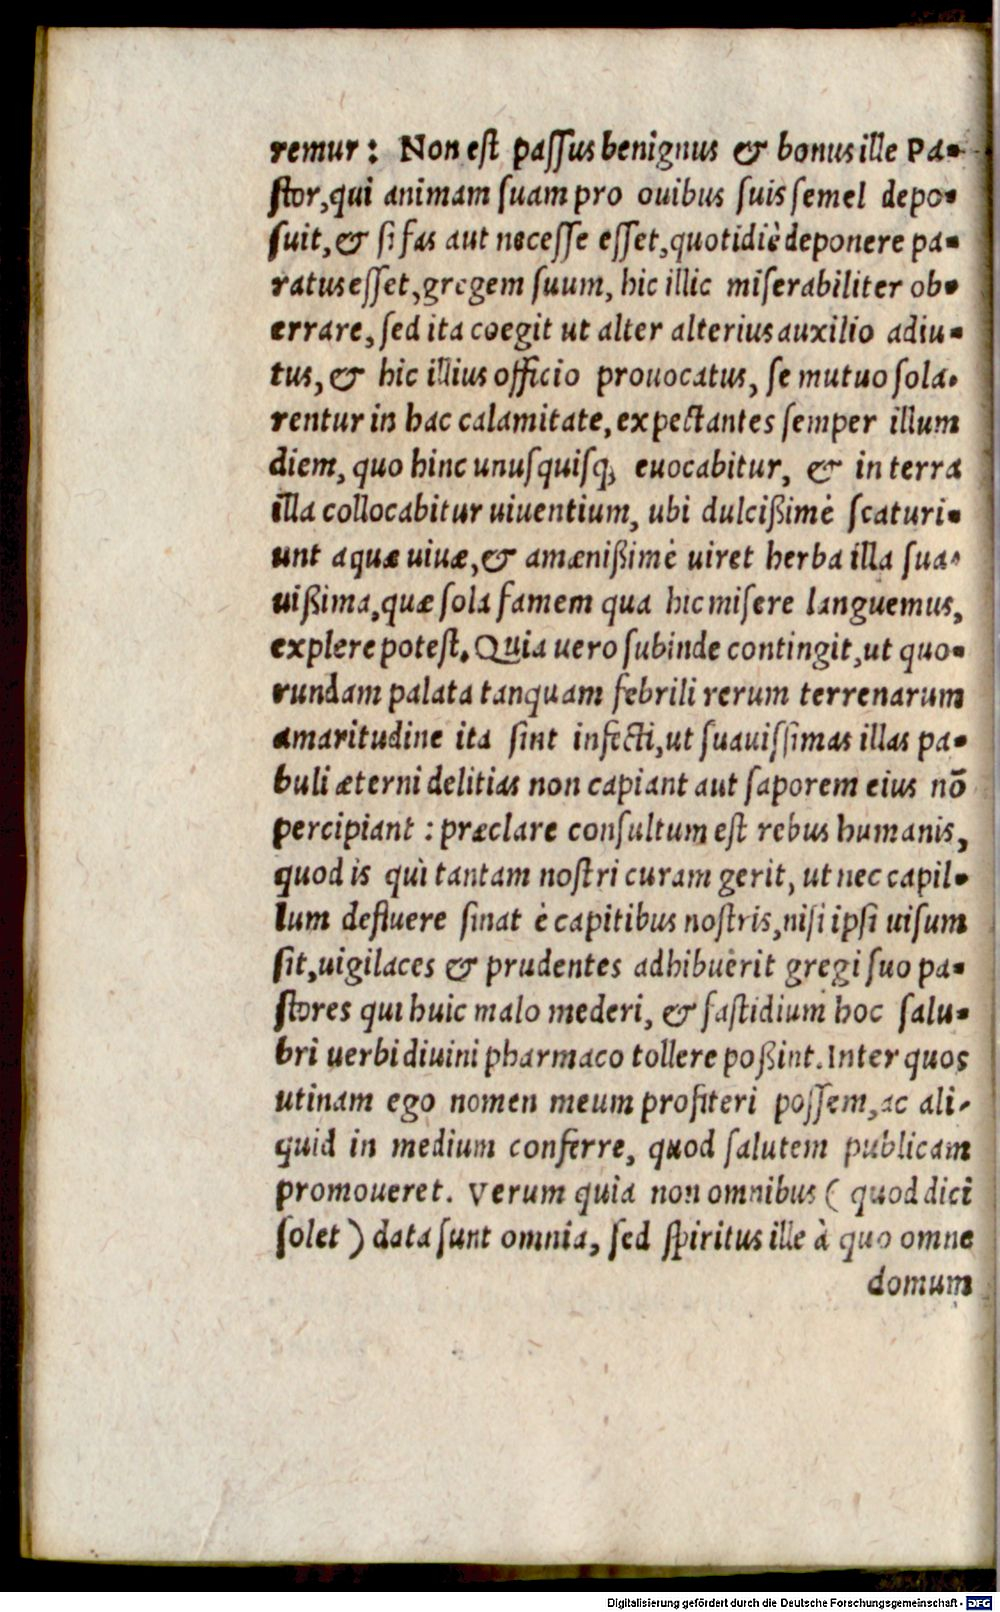 remur: Non est passus benignus & bonus ille Pa-
stor, qui animam suam pro ouibus suis semel depo-
suit, & si fas aut necesse esset, quotidiè deponere pa-
ratus esset, gregem suum, hic illic miserabiliter ob-
errare, sed ita coegit ut alter alterius auxilio adiu-
tus, & hic illius officio prouocatus, se mutuo sola-
rentur in hac calamitate, expectantes semper illum
diem, quo hinc unusquisq; euocabitur, & in terra
illa collocabitur uiuentium, ubi dulcißimè scaturi-
unt aquæ uiuæ, & amænißimè uiret herba illa sua-
uißima, quæ sola famem qua hic misere languemus,
explere potest. Quia uero subinde contingit, ut quo-
rundam palata tanquam febrili rerum terrenarum
amaritudine ita sint infecti, ut suauissimas illas pa-
buli æterni delitias non capiant aut saporem eius nō
percipiant : præclare consultum est rebus humanis,
quod is qui tantam nostri curam gerit, ut nec capil-
lum defluere sinat è capitibus nostris, nisi ipsi uisum
sit, uigilaces & prudentes adhibuerit gregi suo pa-
stores qui huic malo mederi, & fastidium hoc salu-
bri uerbi diuini pharmaco tollere poßint. Inter quos
utinam ego nomen meum profiteri possem, ac ali-
quid in medium conferre, quod salutem publicam
promoueret. Verum quia non omnibus ( quod dici
solet ) data sunt omnia, sed spiritus ille à quo omne
domum
Digitalisierung gefördert durch die Deutsche Forschungsgemeinschaft - DFG